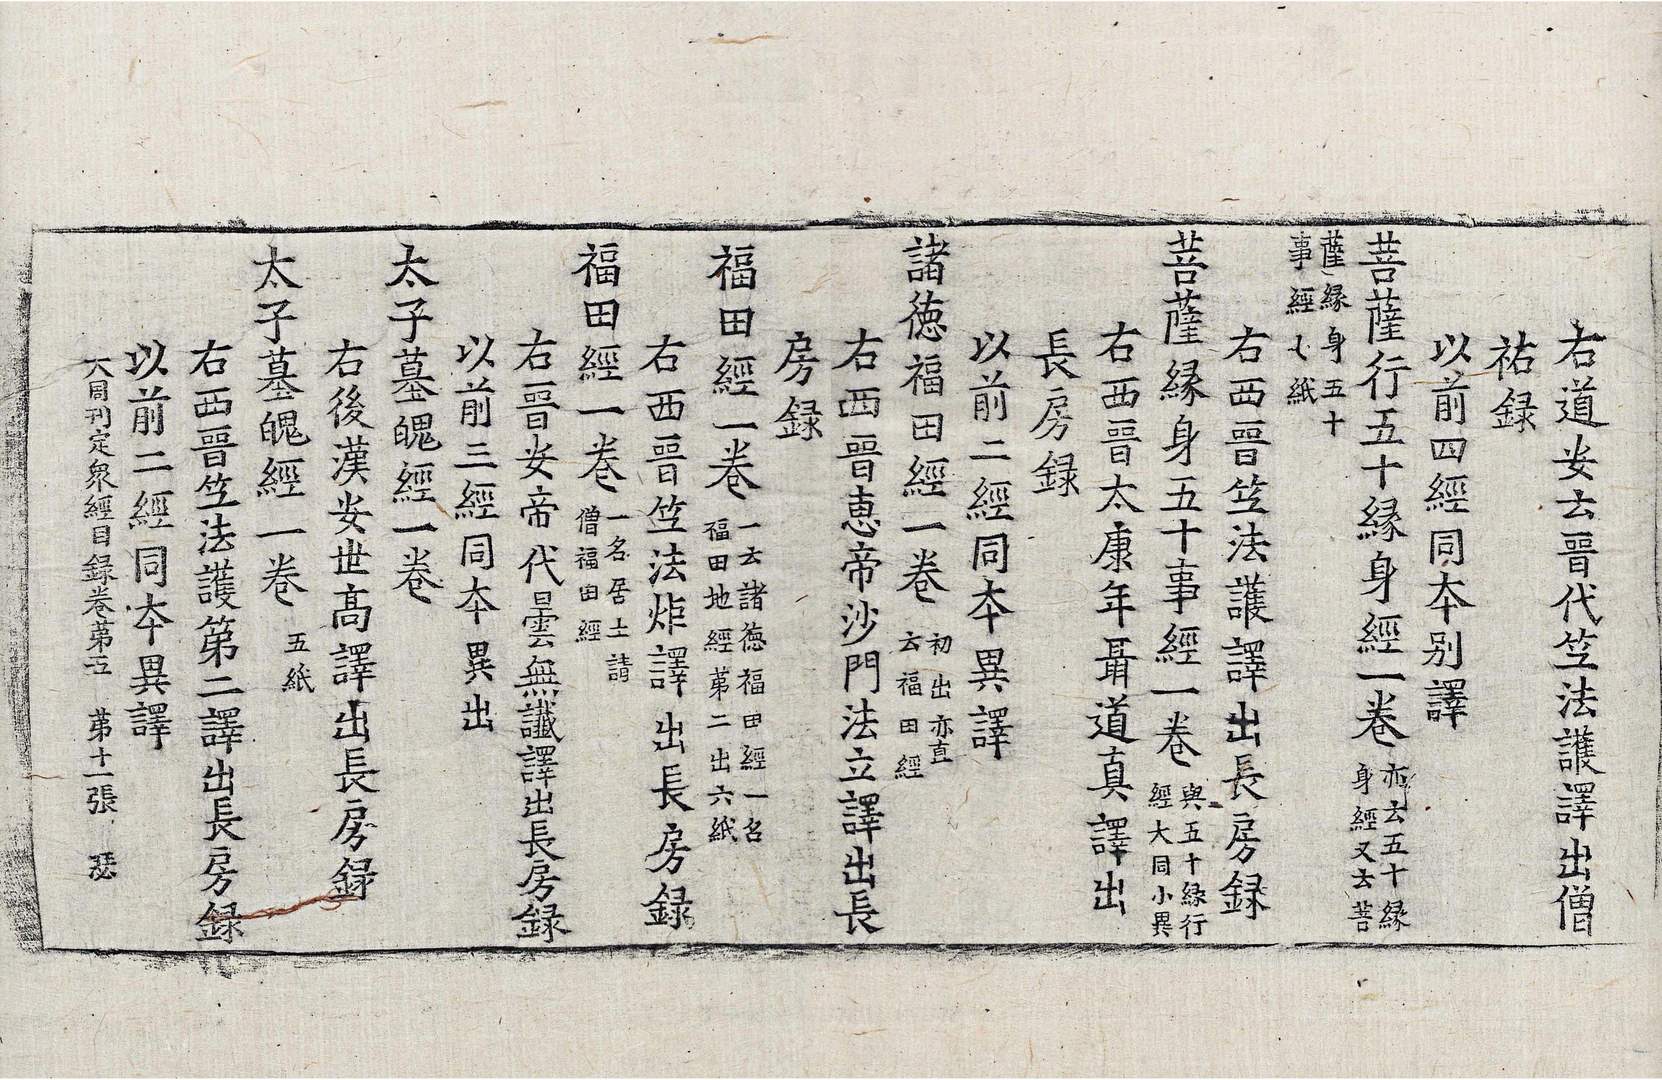 右道安云晉代竺法護譯出僧
祐録
以前四經同本别譯
菩薩行五十縁身經一卷
亦云五十縁
身經又云菩
薩縁身五十
事經七紙
右西晉竺法護譯出長房録
菩薩縁身五十事經一卷
與五十縁行
經大同小異
右西晉太康年聶道真譯出
長房録
以前二經同本異譯
諸德福田經一卷
初出亦直
云福田經
右西晉惠帝沙門法立譯出長
房録
福田經一卷
一云諸德福田經一名
福田地經第二出六紙
右西晉竺法炬譯出長房録
福田經一卷
一名居士請
僧福田經
右晉安帝代曇無讖譯出長房録
以前三經同本異出
太子墓魄經一卷
右後漢安世高譯出長房録
太子墓魄經一卷
五紙
右西晉竺法護第二譯出長房録
以前二經同本異譯
大周刊定衆經目録卷第五 第十一張 瑟